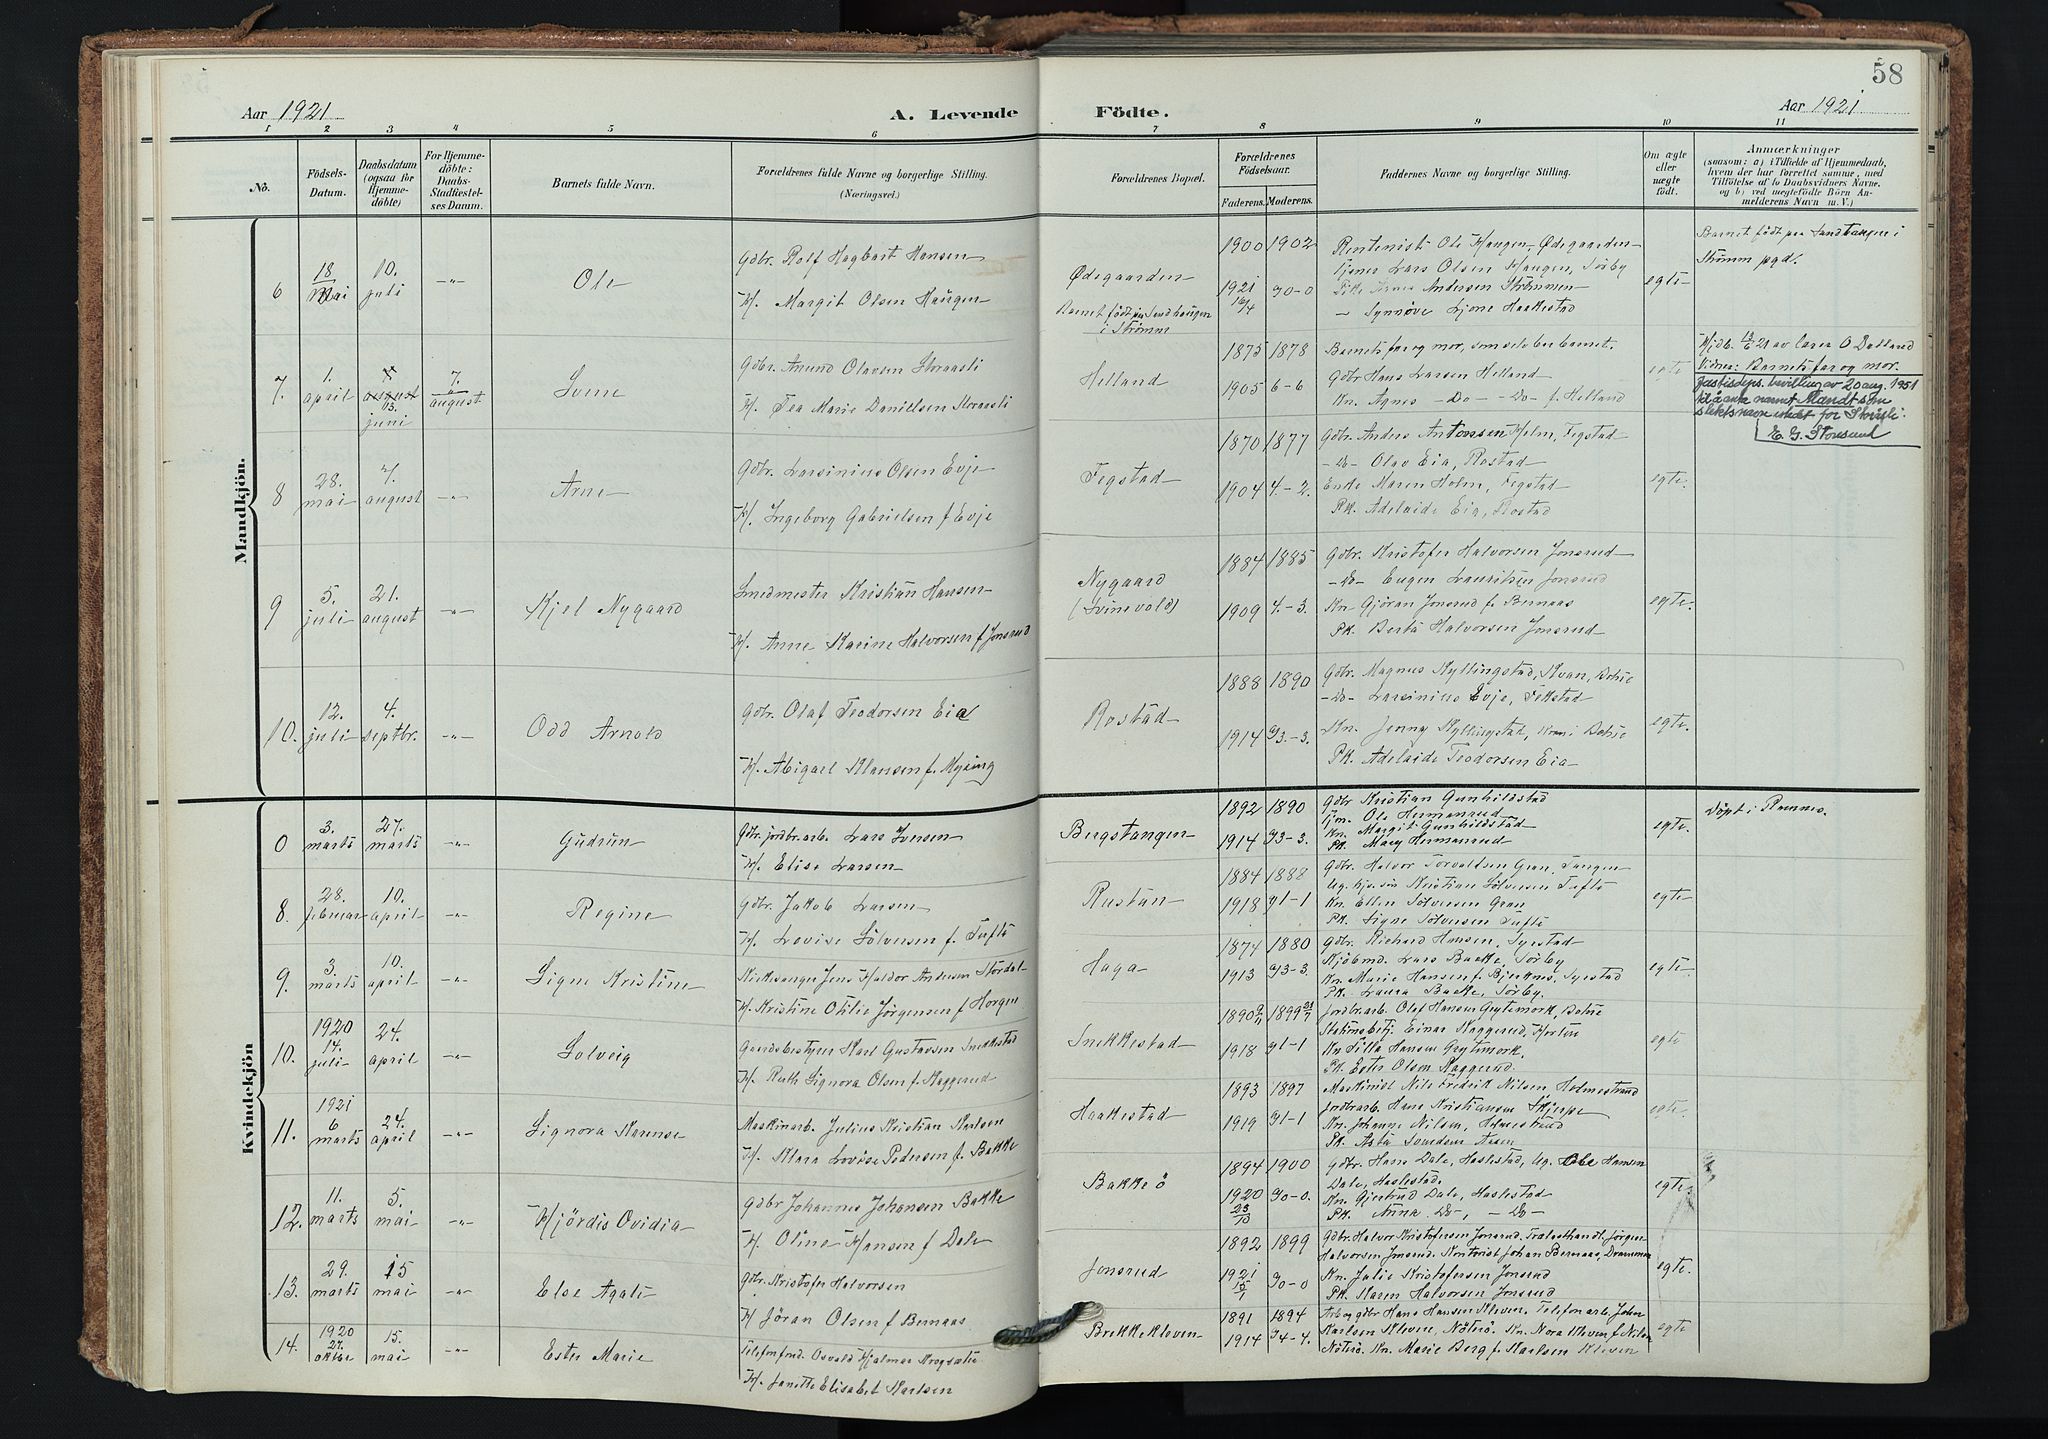 58
Aar 1921
A. Levende Födte.
Aar 1921
1 2 3 4 5 6 7 8 9 10 11
No.
Födsels-
Datum.
Daabsdatum
(ogsaa for
Hjemme-
döbte)
For Hjemme-
döbte:
Daabs-
Stadfæstel-
ses Datum.
Barnets fulde Navn.
Forældrenes fulde Navne og borgerlige Stilling.
(Næringsvei.)
Forældrenes Bopæl.
Forældrenes
Födselsaar.
Faderens. Moderens.
Faddernes Navne og borgerlige Stilling.
Om ægte
eller
uægte
födt.
Anmærkninger
(saasom: a) i Tilfælde af Hjemmedaab,
hvem der har forrettet samme, med
Tilföielse af to Daabsvidners Navne,
og b) ved uegtefödte Börn An-
melderens Navn m. V.)
Mandkjön.
6
18
mai
10.
juli
-"-
Ole
Gdbr. Rolf Hagbart Hansen
H. Margit Olsen Haugen
Ødegaarden
Barnet födt paa Sandhaugen
i Strømm
1900 1902
1921 30-0
16/4
Rentenist Ole Haugen, Ødegaarden
Lars Olsen Haugen, Sørby
Andersen Strømmen
- Synnøve Haakestad
egte
Barnet födt paa Sandhaugen i
Strømm pgd.
7.
1.
april
august
13.
juni
7.
august
Svene
Gdbr. Amund Olavsen Storaasli
H. Tea Marie Danielsen Storaasli
Helland
1875 1878
1905 6-6
Barnets far og mor, som selv bar barnet.
Gdbr Hans Larsen Helland
Kn. Agnes -Do- -Do- f. Helland
egte
Hjdb. 13/6 21 av lærer O Dalland
Vidner: Barnets far og mor.
Justisdeps. bevilling av 20 aug. 1951
til å anta navnet Mandt som
slektsnavn istedet for
8
28.
mai
7.
august
-"-
Arne
Gdbr. Larsinius Olsen Evje
H. Ingeborg Gabrielsen f Evje
Fegstad
1870 1877
1904 4-2.
Gdbr. Anders Antonsen Holm, Fegstad
-Do- Olav Eia, Rostad
Enke Maren Holm, Fegstad
Pk. Adelaide Eia, Rostad
egte.
9
5.
juli
21.
august
-"-
Kjel Nygaard
Smedmester Kristian Hansen
H. Anne Karine Halvorsen f Jonsrud
Nygaard
(Svinevold)
1884 1885
1909 4-3.
Gdbr. Kristofer Halvorsen Jonsrud
-Do- Eugen Lauritsen Jonsrud
Kn Gjöran Jonsrud f. Bernaas
Pk. Berta Halvorsen Jonsrud
egte.
10.
12.
juli
4.
septbr.
-"-
Odd Arnold
Gdbr. Olaf Teodorsen Eia
H. Abigael Klausen f. Mysing
Rostad
1888 1890
1914 33-3.
Gdbr. Magnus Kyllingstad, Kvan, Botne
-Do- Larsinius Evje, Fekstad
Kn. Jenny Kyllingstad, Kvan i Botne
Pk. Adelaide Teodorsen Eia
egte.
Kvindekjön
0
3.
marts
27.
marts
-"-
Gudrun
Gdbr. jordbr.arb. Lars Iversen
H. Elise Larsen
Bergstangen
1892 1890
1914 33-3.
Gdbr Kristian Gunhildstad
Ole Hermanrud
Kn. Margit Gunhildstad
Pk. Mary Hermanrud
egte.
Döpt i Ramnes.
8.
28.
februar
10.
april
-"-
Regine
Gdbr. Jakob Larsen
H. Lovise Sölversen f. Tufte
Rustan
1884 1888
1918 31-1
Gdbr. Halvor Torvaldsen Gran, Tangen
Ug. Kristian Sölversen Tufte
Kn. Ellen Sölversen Gran
Pk. Signe Sölversen Tufte
egte
9.
3.
marts
10.
april
-"-
Signe Kristine
Kirkesanger Jens Haldor Andersen Stordal
H. Kristine Otilie Jörgensen f Horgen
Haga
1874 1880
1913 33-3.
Gdbr. Richard Hansen, Syrstad
Kjöbmd. Lars Bakke, Sörby
Kn. Marie Hansen f. Bjerknes, Syrstad
Pk. Laura Bakke, Sörby.
egte.
10.
1920
14.
juli
24.
april
-"-
Solveig
Gaardsbestyrer Karl Gustavsen Snekkestad
H. Ruth Signora Olsen f Raggerud
Snekkestad
1890 1899
1918 31-1
Jordbr.arb. Olaf Hansen Grytemork, Botne
Einar Raggerud, Horten
Kn Tilla Hansen Grytemork,
Pk Ester Olsen Raggerud.
egte
11.
1921
6
marts
24.
april
-"-
Signora Karense
Maskinarb. Julius Kristian Karlsen
H. Klara Lovise Pedersen f. Bakke
Haakestad
1893 1897
1919 31-1
Maskinist Nils Fredrik Nilsen, Holmestrand
Jordbr.arb. Hans Kristiansen Skjerpe
Kn. Johanne Nilsen, Holmestrand
Pk. Asta Svendsen Aasen
egte.
12.
11.
marts
5.
mai
-"-
Hjördis Ovidia
Gdbr Johannes Johansen Bakke
H. Oline Hansen f Dale
Bakke ö
1894 1900
1920 30-0.
23/10
Gdbr. Hans Dale, Haslestad, Ug. Ole Hansen
Dale, Haslestad.
Kn. Gjertrud Dale, Haslestad
Pk. Anna -Do-, -Do-
egte.
13.
29.
marts
15
mai
-"-
Else Agate
Gdbr. Kristofer Halvorsen
H Jöran Olsen f Bernaas
Jonsrud
1892 1899
1921 30-0
15/1
Gdbr. Halvor Kristofersen Jonsrud. Trælasthandl. Jörgen
Halvorsen Jonsrud. Kontorist Johan Bernaas, Drammen
Kn. Julie Kristofersen Jonsrud
Pk. Karen Halvorsen Jonsrud
egte.
14.
1920
27.
oktbr
15.
mai
-"-
Ester Marie
Telefonfmd. Osvald Hjalmar Krogsætie
H. Janette Elisabet Karlsen
Brekkekleven
1891 1894
1914 34-4.
Arb og gdbr Hans Hansen Kleven, Telefonarb. Johan
Karlsen Kleven, Nöterö. Kn. Nora Kleven f Nilsen
Nöterö. Kn. Marie Berg f. Karlsen Kleven
egte